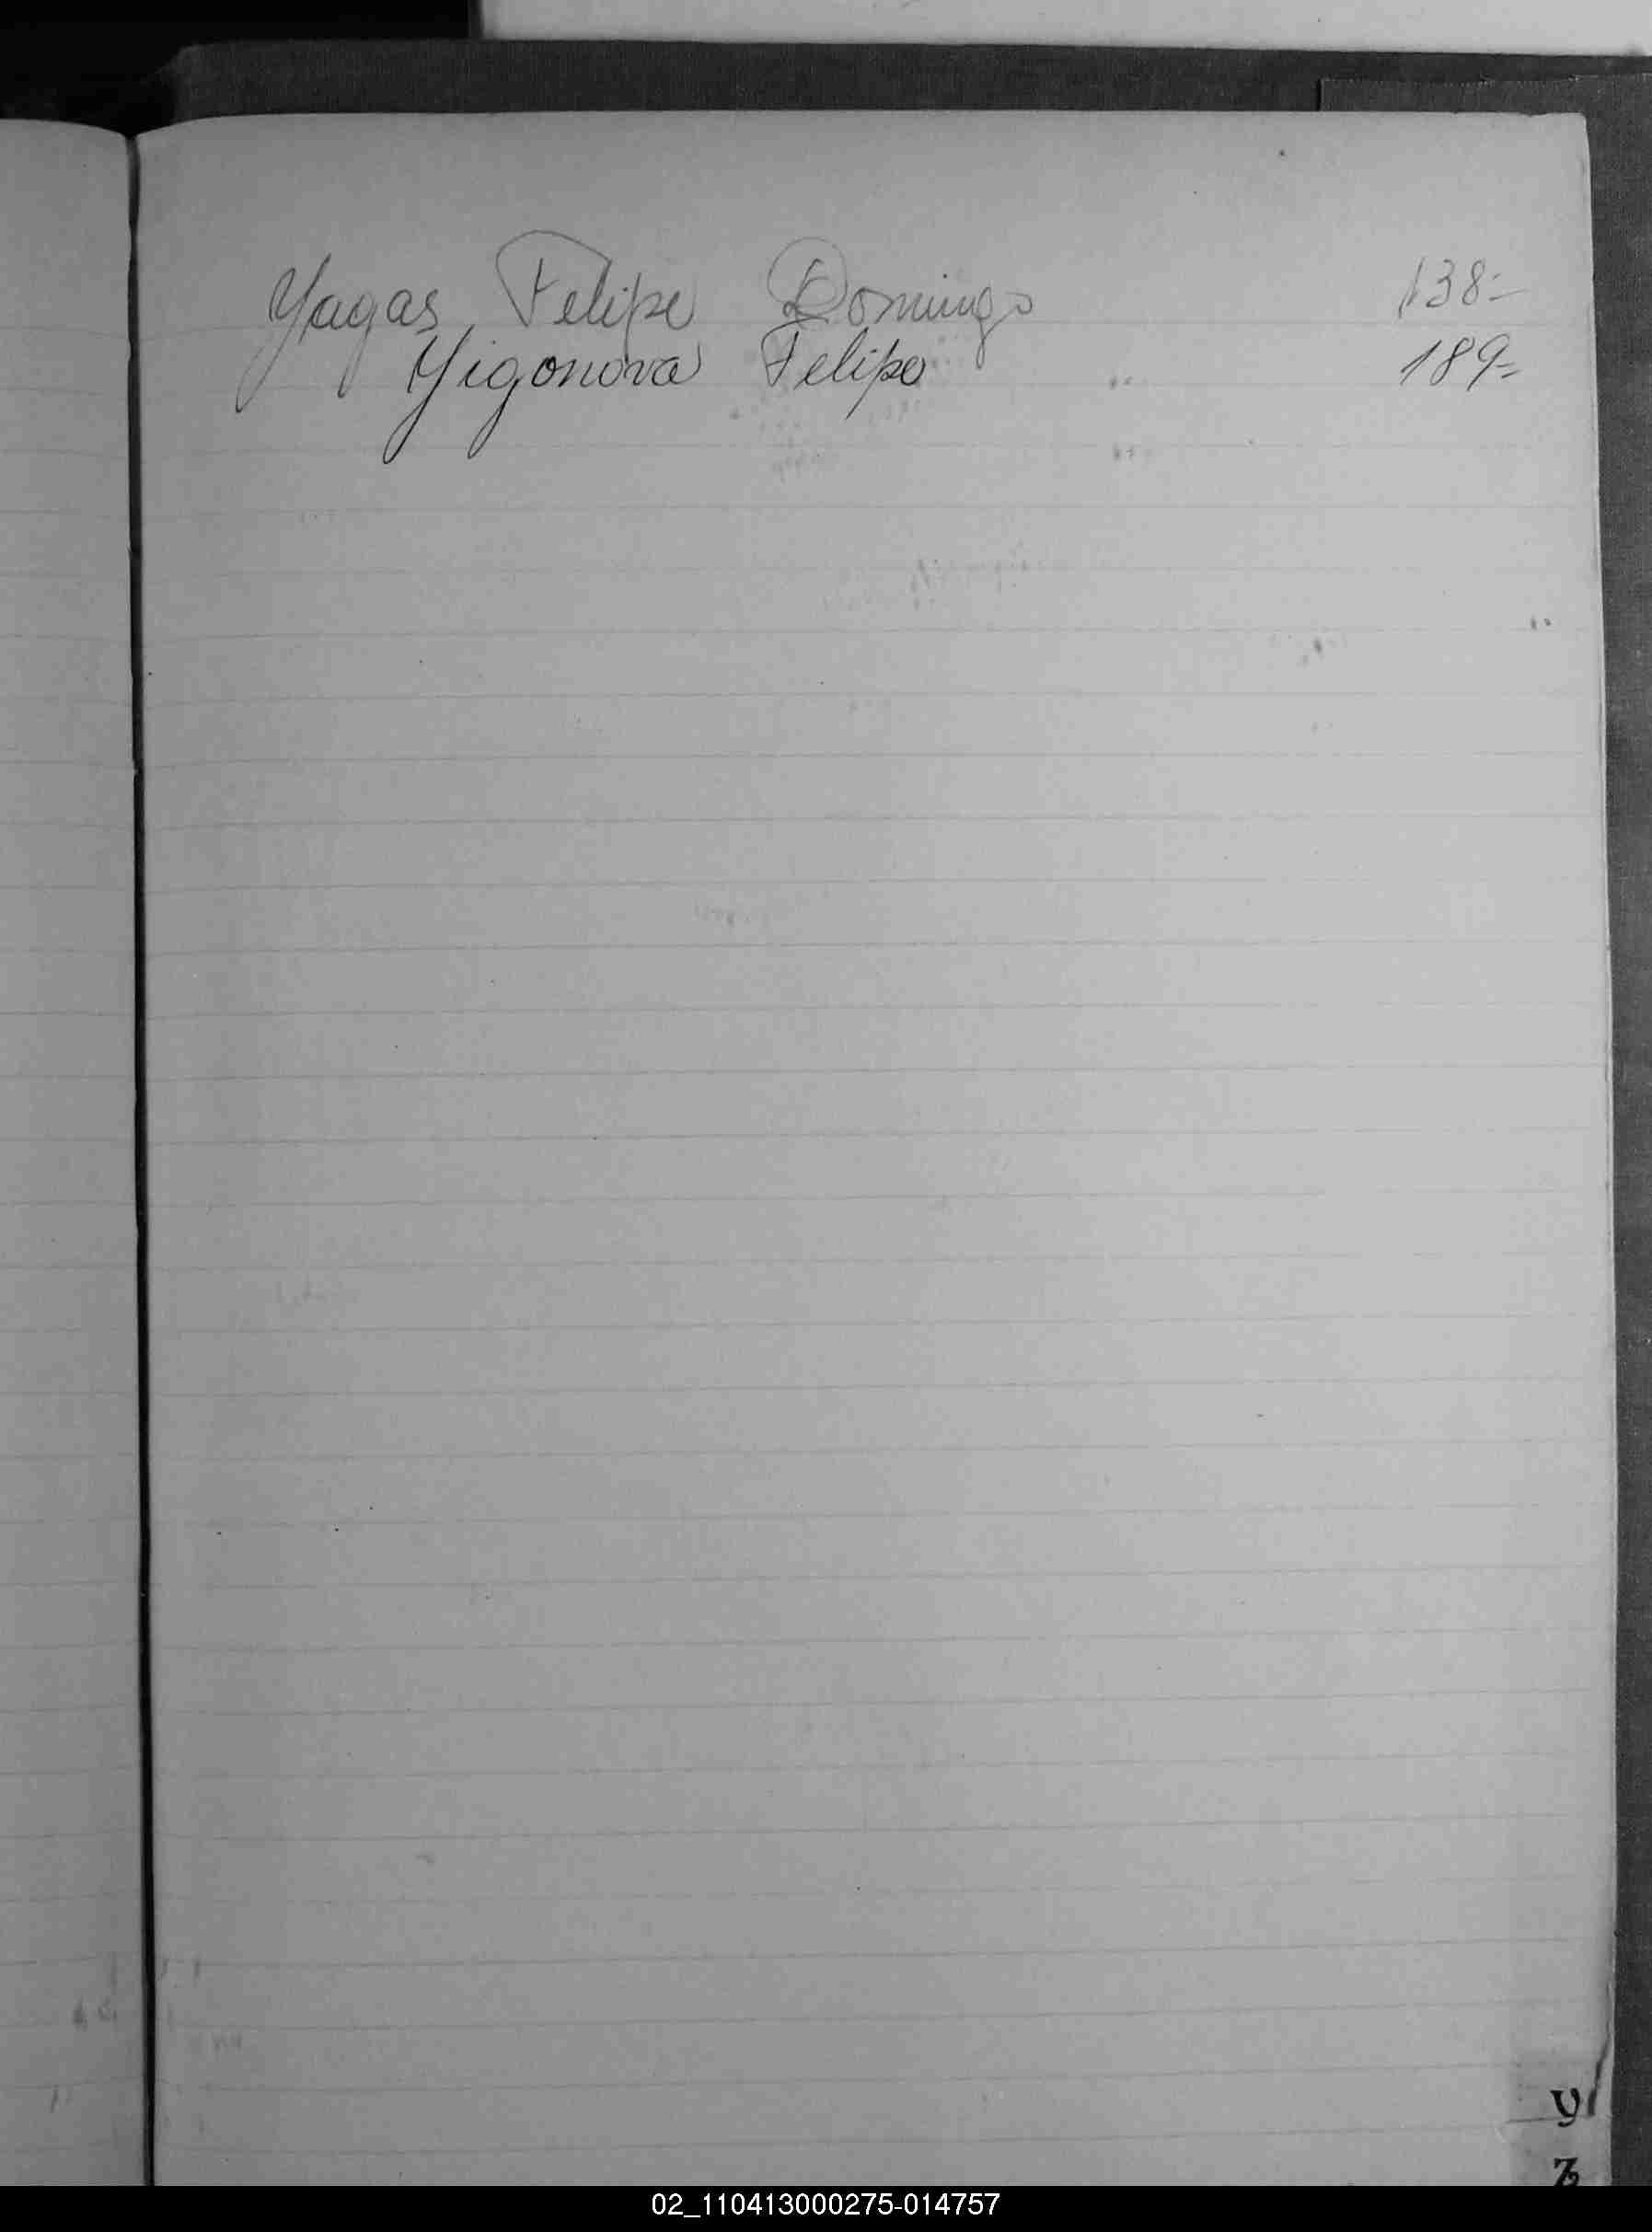 Yagas, Felipe Domingo 138=
Yigonova Felipe 189=
y
z
02_110413000275-014757